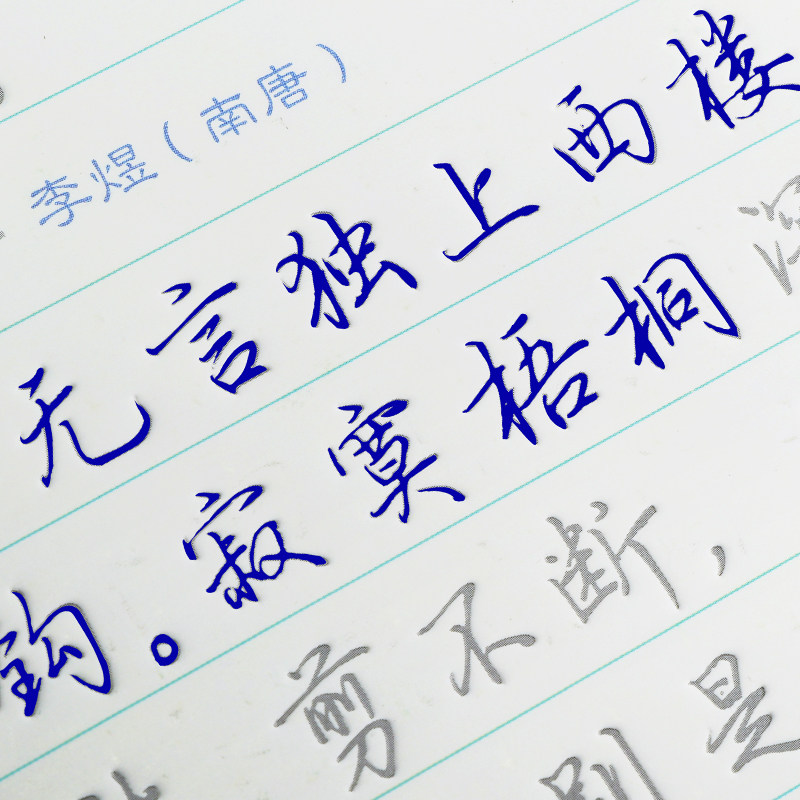 李煜（南唐）
无言独上西楼
钩。寂寞梧桐深
剪不断，
别是